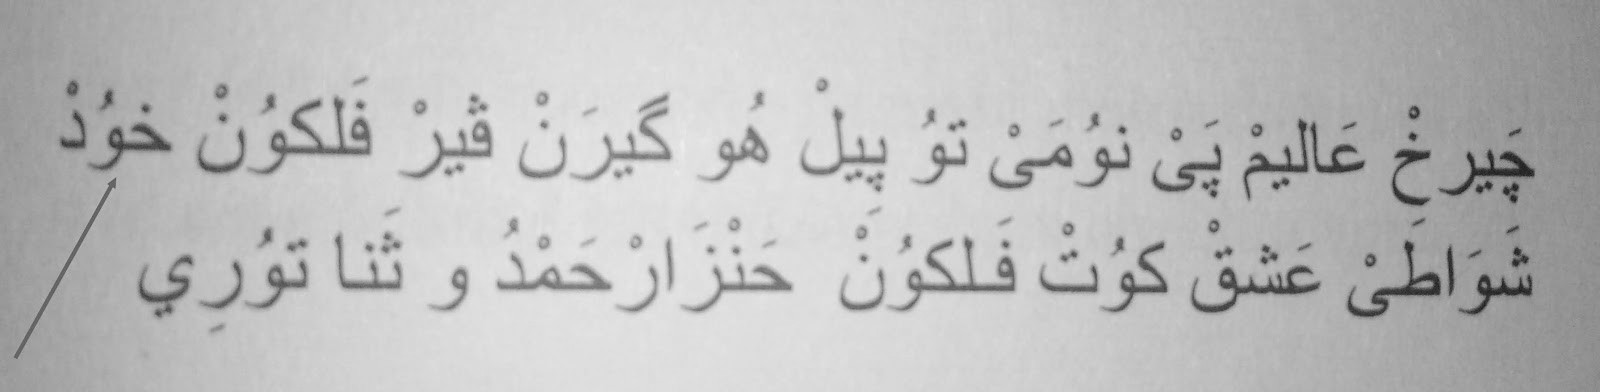 چَیرخْ عَالیمْ پَیْ نوُمَیْ توُ پیلْ هُو گیرَنْ ڤیرْ فَلکوُنْ خوُدْ
شَوَاطَیْ عَشقْ کوُتْ فَلکوُنْ حَنْزَارْ حَمْدُ و ثَنا توُرِي